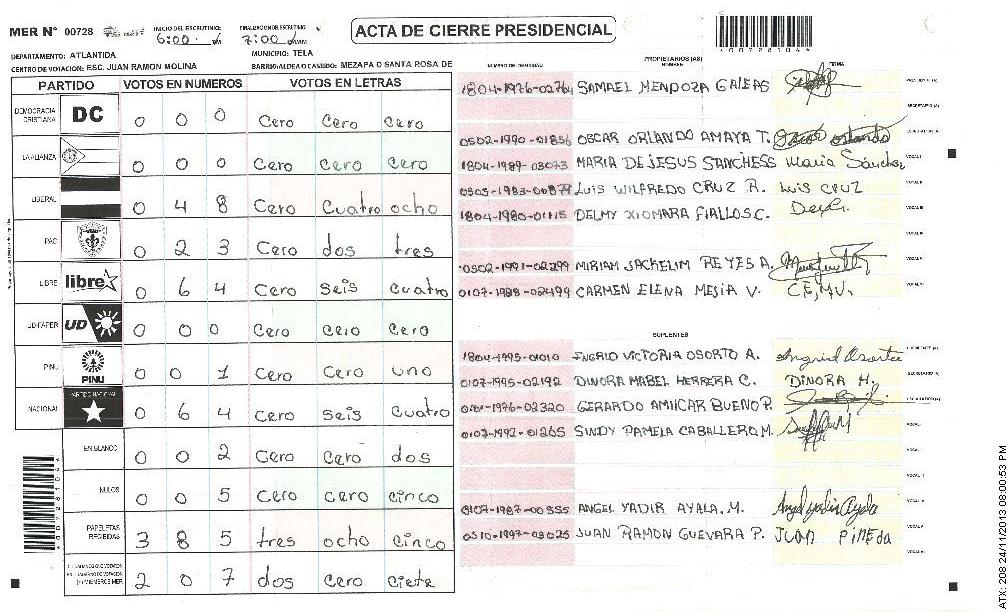 MER N° 00728 INICIO DEL ESCRUTINIO 6:00 PM FINALIZACION DE ESCRUTINIO 7:00 AM ACTA DE CIERRE PRESIDENCIAL
DEPARTAMENTO: ATLANTIDA MUNICIPIO: TELA
CENTRO DE VOTACION: ESC. JUAN RAMON MOLINA BARRIO/ALDEA O CASERIO: MEZAPA O SANTA ROSA DE
PARTIDO VOTOS EN NUMEROS VOTOS EN LETRAS
DEMOCRACIA CRISTIANA DC 0 0 0 Cero Cero Cero
LA ALIANZA 0 0 0 Cero Cero Cero
LIBERAL 0 4 8 Cero Cuatro ocho
PAC 0 2 3 Cero dos tres
LIBRE libre 0 6 4 Cero Seis Cuatro
UD-FAPER UD 0 0 0 Cero Cero Cero
PINU PINU 0 0 1 Cero Cero uno
NACIONAL PARTIDO NACIONAL 0 6 4 Cero Seis Cuatro
EN BLANCO 0 0 2 Cero Cero dos
NULOS 0 0 5 Cero Cero Cinco
PAPELETAS RECIBIDAS 3 8 5 tres ocho Cinco
2 0 7 dos Cero Ciete
NUMERO DE IDENTIDAD PROPIETARIOS (AS) NOMBRE FIRMA
1804-1976-02764 SAMAEL MENDOZA GALEAS
0502-1990-01856 OSCAR ORLANDO AMAYA T.
1804-1989-03023 MARIA DE JESUS SANCHESS Maria Sánchez
LUIS WILFREDO CRUZ R. LUIS CRUZ
1804-1980-01115 DELMY XIOMARA FIALLOS C.
0502-1991-02299 MIRIAM JACKELIM REYES A.
0107-1988-02499 CARMEN ELENA MESIA V. C.E.M.V.
SUPLENTES
1804-1995-01010 INGRID VICTORIA OSORTO A. Ingrid Osorto
0107-1995-02192 DINORA MABEL HERRERA C. DINORA H.
0101-1976-02320 GERARDO AMILCAR BUENO P.
0107-1992-01265 SINDY PAMELA CABALLERO M.
0107-1987-00355 ANGEL YADIR AYALA. M. Angel yadir Ayala
0510-1997-03025 JUAN RAMON GUEVARA P. JUAN PINEDA
ATX: 208 24/11/2013 08:00:53 PM